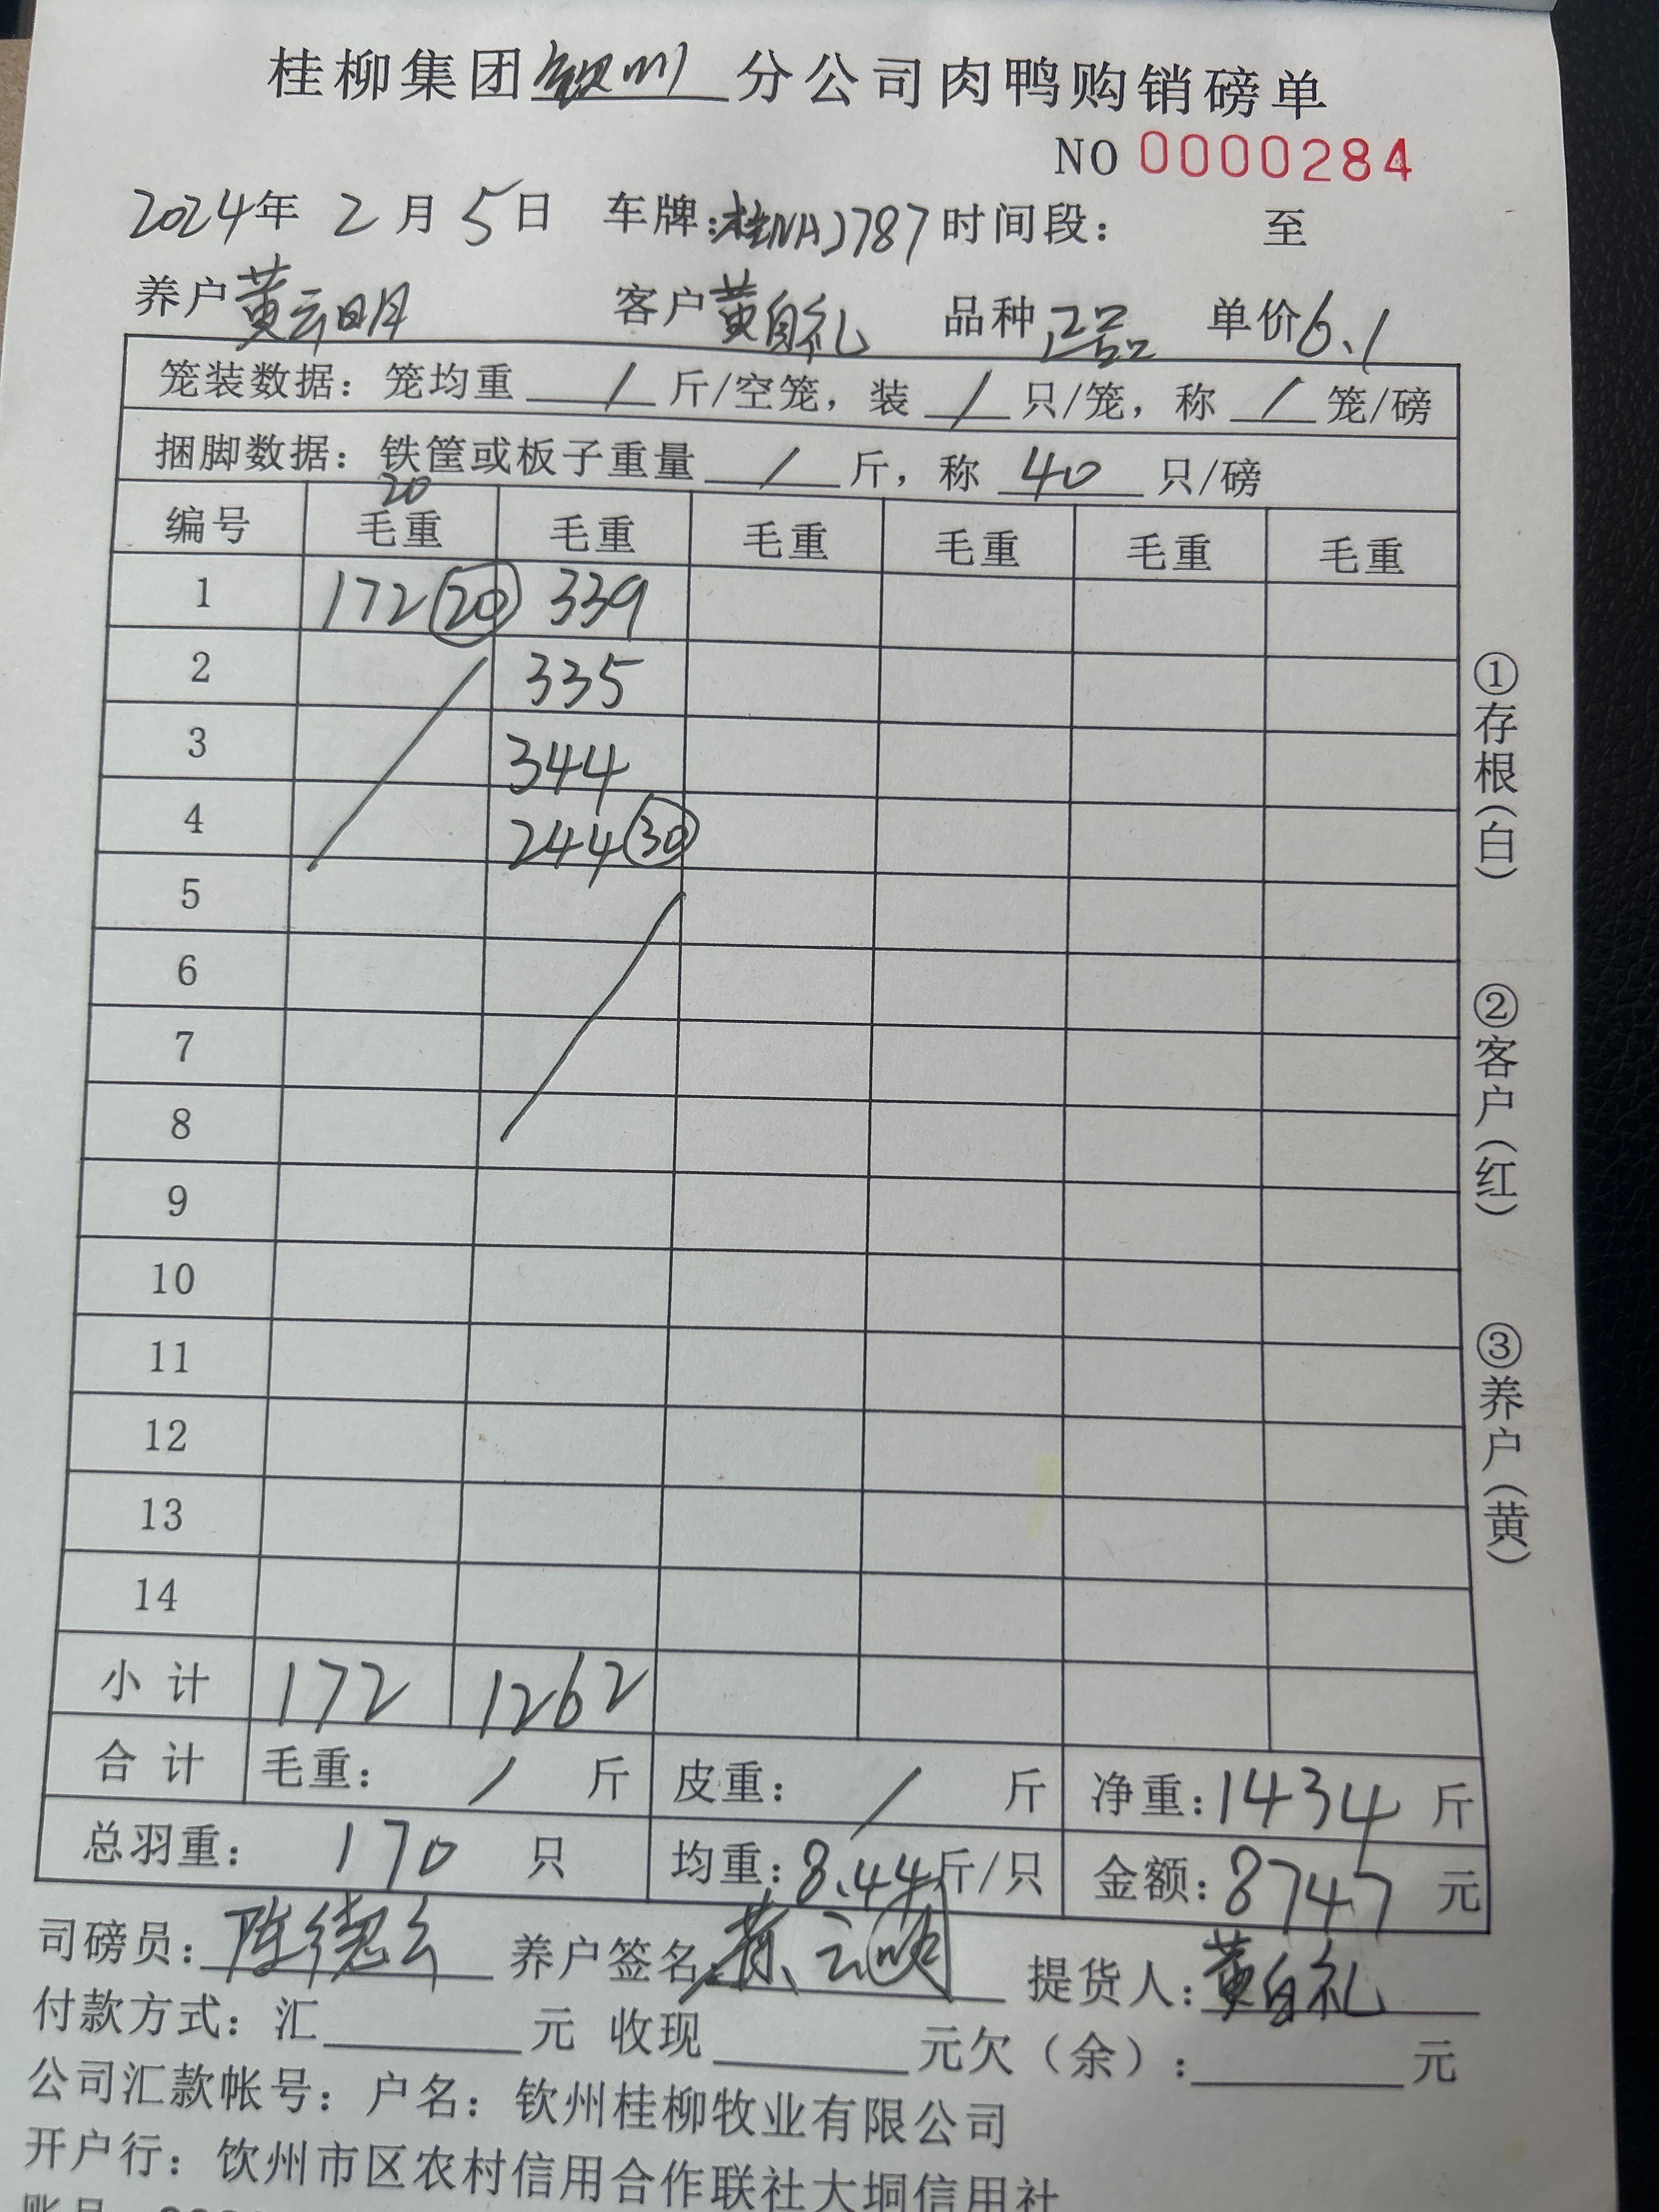 桂柳集团钦州分公司肉鸭购销磅单
NO 0000284
2024年 2 月 5日 车牌:桂NA2787 时间段: 至
养户黄云明 客户黄自礼 品种正品 单价6.1
笼装数据: 笼均重 / 斤/空笼, 装 / 只/笼, 称 / 笼/磅
捆脚数据: 铁筐或板子重量 / 斤, 称 40 只/磅
20
编号 毛重 毛重 毛重 毛重 毛重 毛重
1 172 20 339
2 335
3 344
4 244 30
5
6
7
8
9
10
11
12
13
14
小计 172 1262
合计 毛重: / 斤 皮重: / 斤 净重:1434 斤
总羽重: 170 只 均重:8.44斤/只 金额:8747 元
司磅员:陈德 养户签名:黄云明 提货人:黄自礼
付款方式: 汇 元 收现 元欠(余): 元
公司汇款帐号: 户名: 钦州桂柳牧业有限公司
开户行: 钦州市区农村信用合作联社大垌信用社
①存根(白)
②客户(红)
③养户(黄)